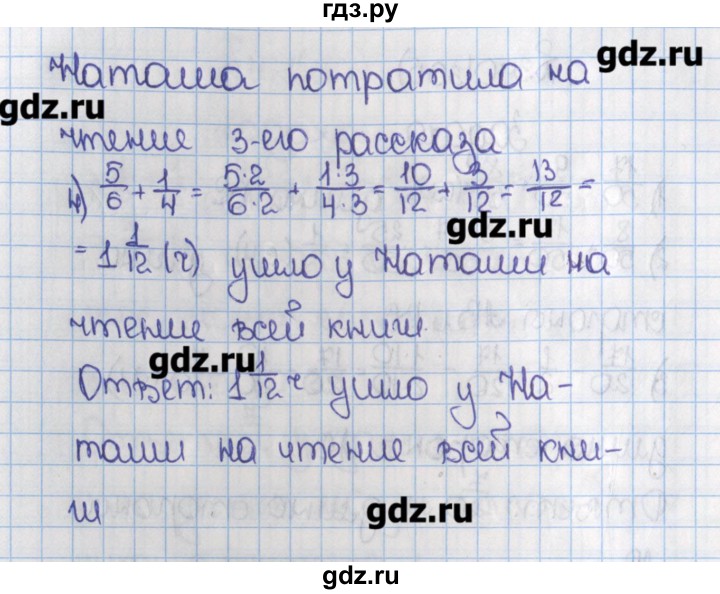 гдз.ру
Наташа потратила на
gdz.ru
gdz.ru
чтение 3-его рассказа
4) 5/6 + 1/4 = 5·2/6·2 + 1·3/4·3 = 10/12 + 3/12 = 13/12 =
gdz.ru
= 1 1/12 (ч) ушло у Наташи на
чтение всей книги.
gdz.ru
Ответ: 1 1/12 ч ушло у На-
таши на чтение всей кни-
ги
gdz.ru
gdz.ru